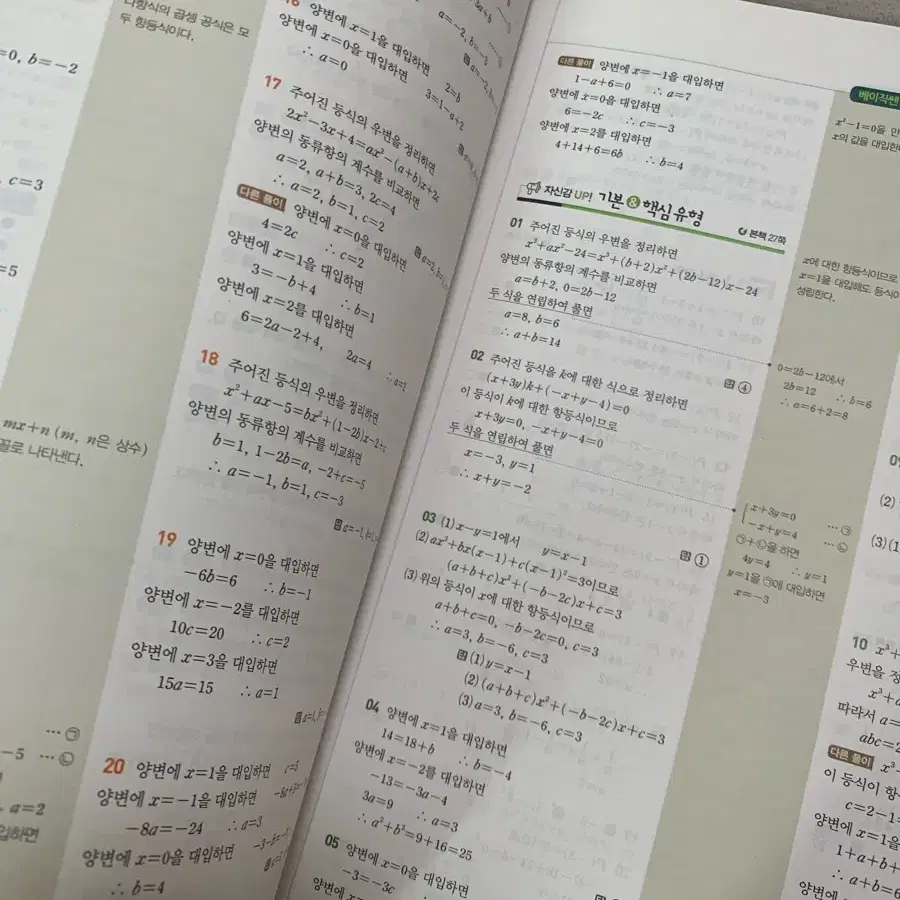 다항식의 곱셈 공식은 모
두 항등식이다.
=0, b=-2
c=3
=5
mx+n (m, n은 상수)
꼴로 나타낸다.
… ㉠
-5 … ㉡
a=2
입하면
16 양변에 x=1을 대입하면
양변에 x=0을 대입하면
∴ a=0
2=b
3=1-a+2
17 주어진 등식의 우변을 정리하면
2x²-3x+4=ax²-(a+b)x+2c
양변의 동류항의 계수를 비교하면
a=2, a+b=3, 2c=4
∴ a=2, b=1, c=2
다른 풀이 양변에 x=0을 대입하면
4=2c ∴ c=2
양변에 x=1을 대입하면
3=-b+4 ∴ b=1
양변에 x=2를 대입하면
6=2a-2+4, 2a=4 ∴ a=2
18 주어진 등식의 우변을 정리하면
x²+ax-5=bx²+(1-2b)x-2+c
양변의 동류항의 계수를 비교하면
b=1, 1-2b=a, -2+c=-5
∴ a=-1, b=1, c=-3
19 양변에 x=0을 대입하면
-6b=6 ∴ b=-1
양변에 x=-2를 대입하면
10c=20 ∴ c=2
양변에 x=3을 대입하면
15a=15 ∴ a=1
20 양변에 x=1을 대입하면
양변에 x=-1을 대입하면
-8a=-24 ∴ a=3
양변에 x=0을 대입하면
∴ b=4
다른 풀이 양변에 x=-1을 대입하면
1-a+6=0 ∴ a=7
양변에 x=0을 대입하면
6=-2c ∴ c=-3
양변에 x=2를 대입하면
4+14+6=6b ∴ b=4
자신감 UP! 기본 & 핵심 유형
본책 27쪽
01 주어진 등식의 우변을 정리하면
x³+ax²-24=x³+(b+2)x²+(2b-12)x-24
양변의 동류항의 계수를 비교하면
a=b+2, 0=2b-12
두 식을 연립하여 풀면
a=8, b=6
∴ a+b=14
답 ④
02 주어진 등식을 k에 대한 식으로 정리하면
(x+3y)k+(-x+y-4)=0
이 등식이 k에 대한 항등식이므로
x+3y=0, -x+y-4=0
두 식을 연립하여 풀면
x=-3, y=1
∴ x+y=-2
답 ①
03 (1) x-y=1에서 y=x-1
(2) ax²+bx(x-1)+c(x-1)²=3이므로
(a+b+c)x²+(-b-2c)x+c=3
(3) 위의 등식이 x에 대한 항등식이므로
a+b+c=0, -b-2c=0, c=3
∴ a=3, b=-6, c=3
답 (1) y=x-1
(2) (a+b+c)x²+(-b-2c)x+c=3
(3) a=3, b=-6, c=3
04 양변에 x=1을 대입하면
14=18+b ∴ b=-4
양변에 x=-2를 대입하면
-13=-3a-4
3a=9 ∴ a=3
∴ a²+b²=9+16=25
05 양변에 x=0을 대입하면
-3=-3c
양변에
베이직쎈
x²-1=0을 만
x의 값을 대입한
x에 대한 항등식이므로
x=1을 대입해도 등식이
성립한다.
0=2b-12에서
2b=12 ∴ b=6
∴ a=6+2=8
x+3y=0 … ㉠
-x+y=4 … ㉡
㉠+㉡을 하면
4y=4 ∴ y=1
y=1을 ㉠에 대입하면
x=-3
(2)
(3) (1)
10 x³+
우변을 정
x³+a
따라서 a=
abc=2
다른 풀이 x³
이 등식이 항
c=2-1=
양변에 x=1을
1+a+b+
∴ a+b=6
양변에 x=